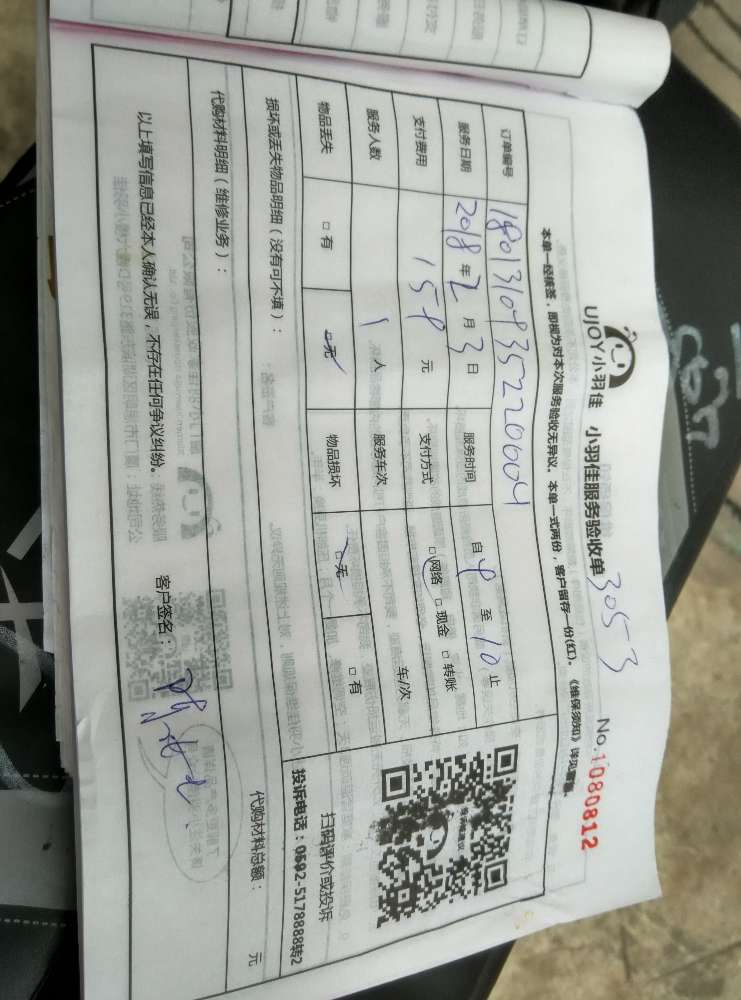 UJOY小羽佳 小羽佳服务验收单 3053 No.1080812
本单一经核签，即视为对本次服务验收无异议。本单一式两份，客户留存一份(红)。《维保须知》详见背面。
订单编号
服务日期 2018年2月3日 服务时间 自9至10止
支付费用 元 支付方式 □网络 □现金 □转账
服务人数 1人 服务车次 车/次
物品丢失 □有 □无 物品损坏 □无 □有
扫码评价或投诉
投诉电话：0592-5178888转2
损坏或丢失物品明细（没有可不填）：
代购材料明细（维修业务）： 代购材料总额： 元
以上填写信息已经本人确认无误，不存在任何争议纠纷。 客户签名：